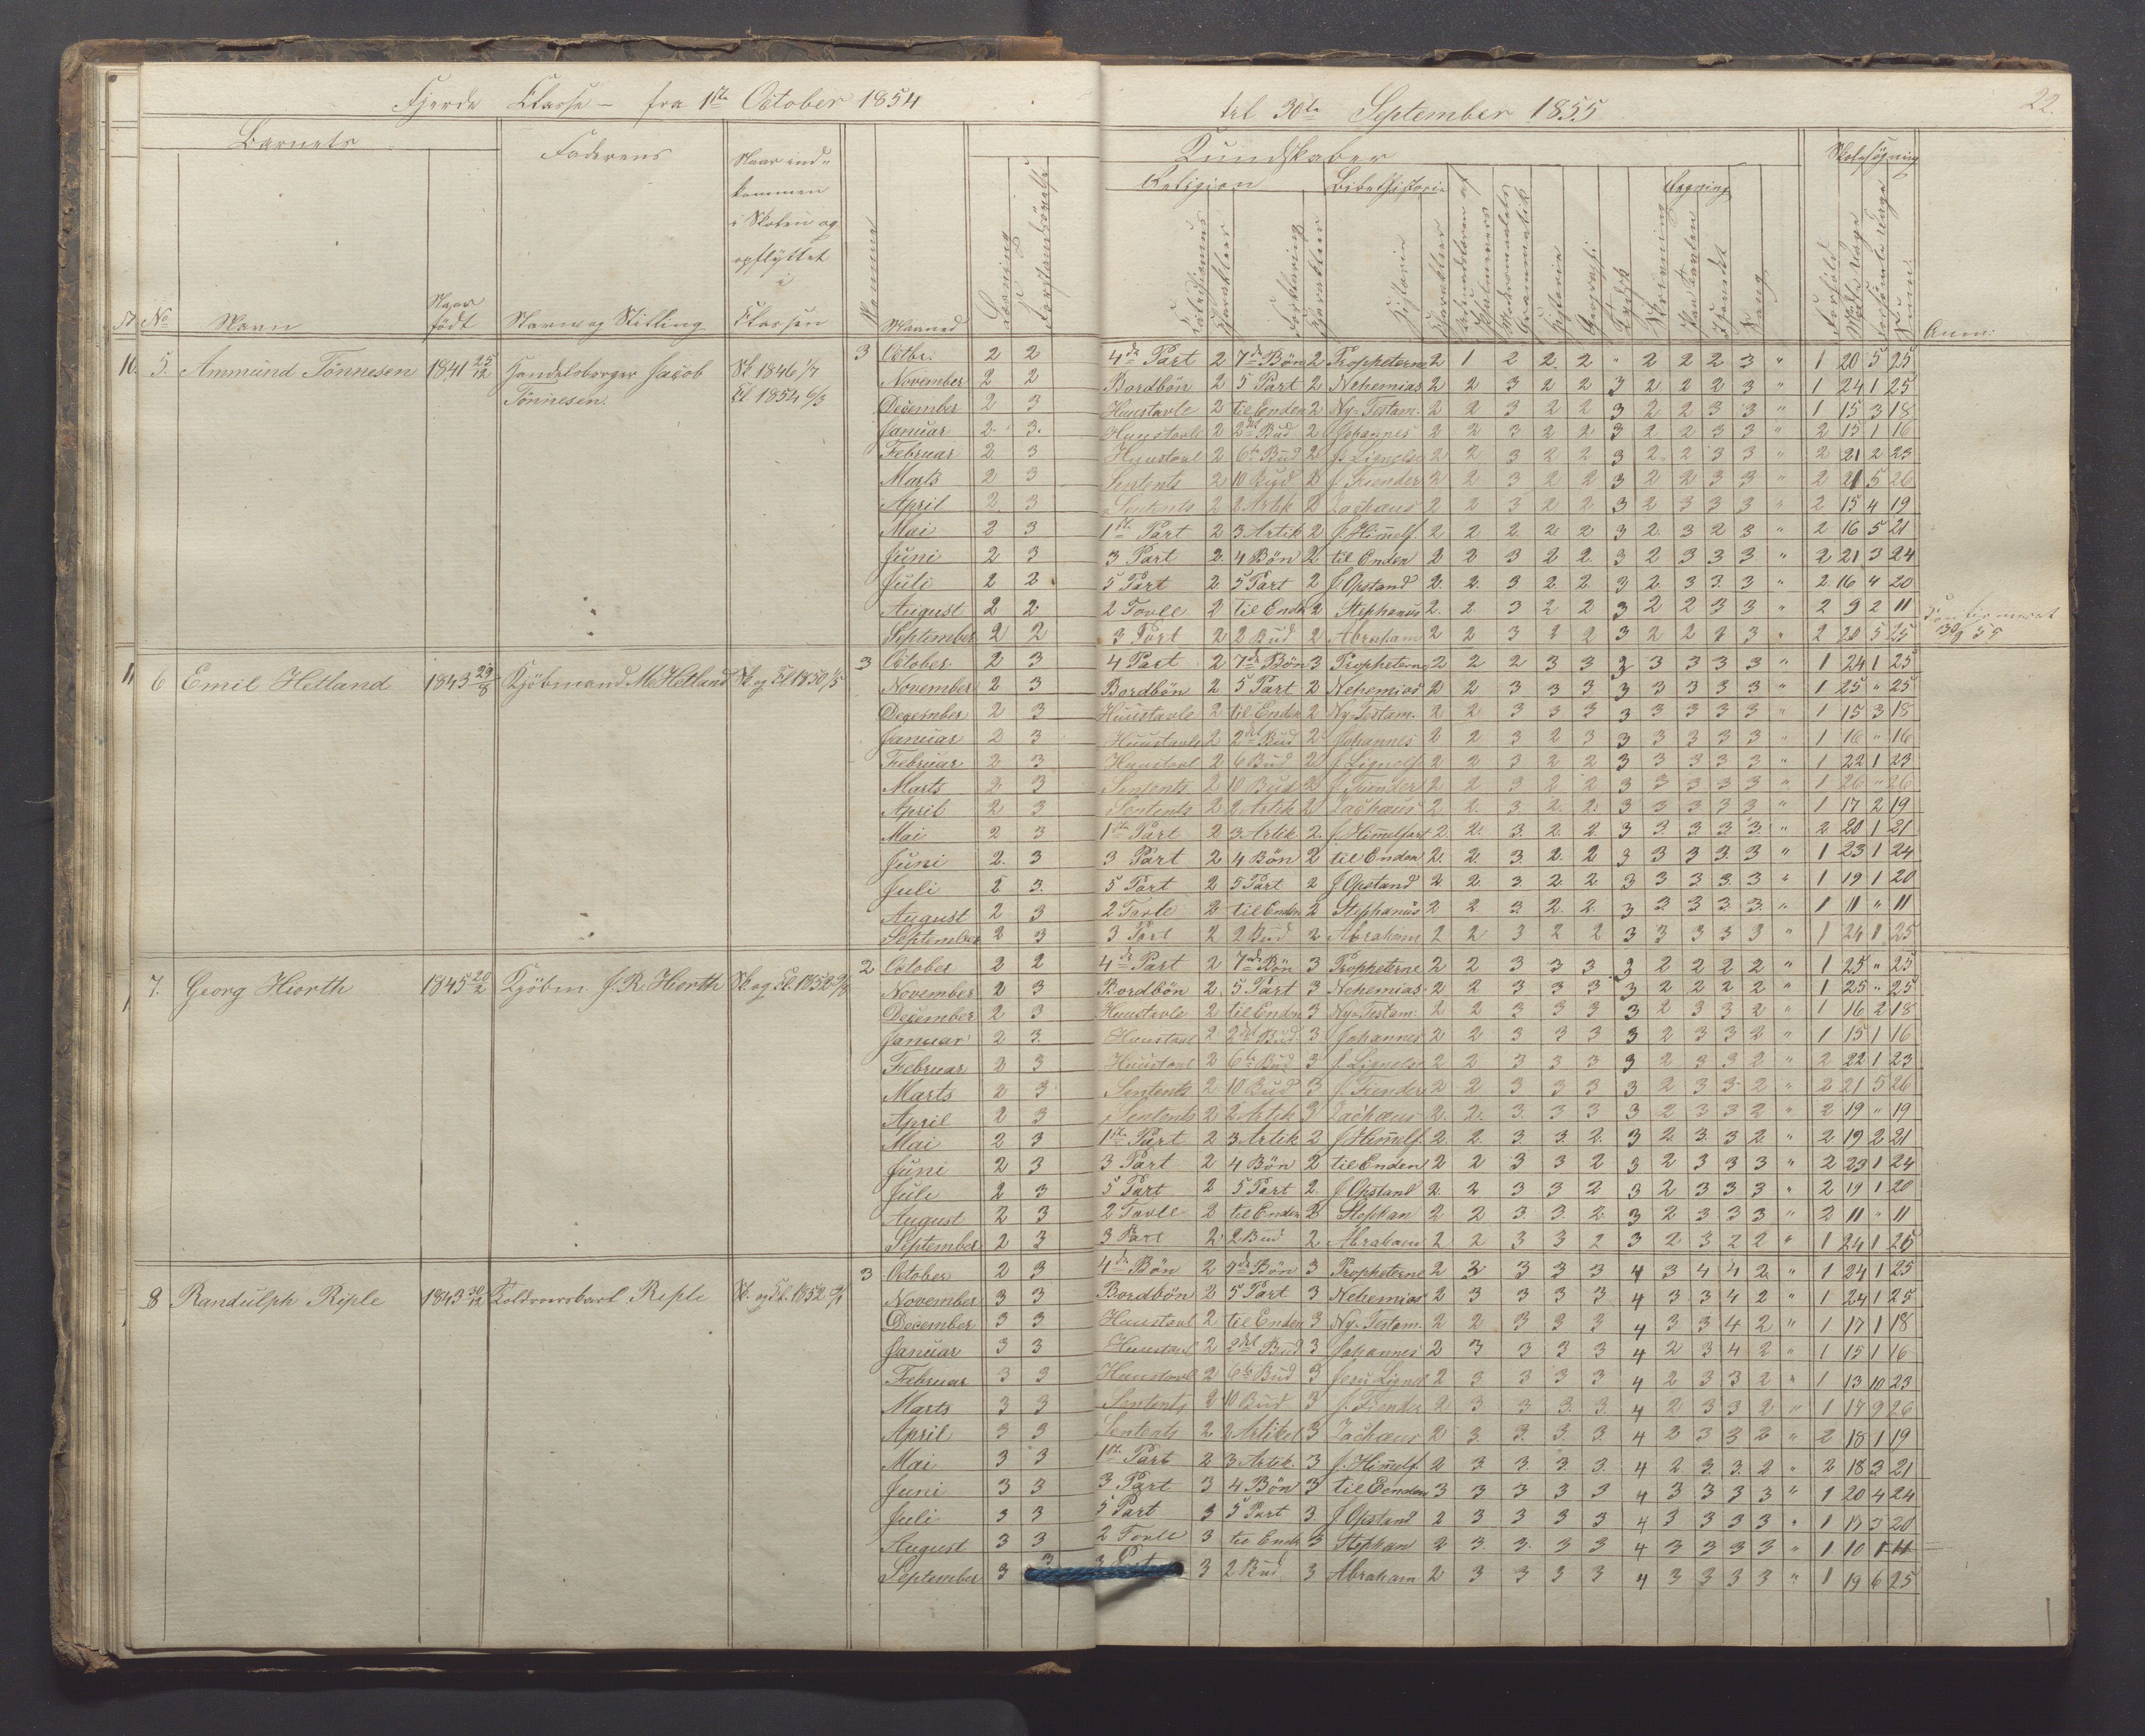 Fjerde Classe – fra 1ste October 1854
til 30te September 1855
22.
Barnets
Faderens
Naar ind-
kommen
i Skolen og
opflyttet
i
Classen
Kundskaber
Religion
Bibelhistorie
Regning
Skolesøgning
No
Navn
Naar
født
Navn og Stilling
Maaned
Læsning
Forklaring
Karakter
Historie
Geografi
Tydsk
Skrivning
Sang
Forhold
Anm:
10. 5. Ammund Tönnesen 1841 25/12 Handelsborger Jacob Sk 1846 1/7 3 Octbr. 2 2 4de Part 2 7de Bön 2 Propheterne 2 1 2 2 2 " 2 2 2 3 " 1 20 5 25
Tönnesen. Cl 1854 6/3 November 2 2 Bordbön 2 5 Part 2 Nehemias 2 2 3 2 2 3 2 2 2 3 " 1 24 1 25
December 2 3 Huustavle 2 til Enden 2 Ny-Testam. 2 2 3 2 2 3 2 2 3 3 " 1 15 3 18
Januar 2 3 Huustavle 2 2det Bud 2 Johannes 2 2 3 2 2 3 2 2 3 3 " 2 15 1 16
Februar 2 3 Huustavl 2 6te Bud 2 Js Lignelse 2 2 3 2 2 3 2 2 3 3 " 2 21 2 23
Marts 2 3 Sentents 2 10 Bud 2 J. Fiender 2 2 3 2 2 3 2 2 3 3 " 2 21 5 26
April 2 3 Sentents 2 2 Artik 2 Zachæus 2 2 3 2 2 3 2 3 3 3 " 2 15 4 19
Mai 2 3 1ste Part 2 3 Artik 2 J. Himelf. 2 2 2 2 2 3 2 3 2 3 " 2 16 5 21
Juni 2 3 3 Part 2 4 Bön 2 til Enden 2 2 3 2 2 3 2 3 3 3 " 2 21 3 24
Juli 2 2 5 Part 2 5 Part 2 J Opstand 2 2 3 2 2 3 2 3 3 3 " 2 16 4 20
August 2 2 2 Tavle 2 til Enden 2 Stephanus 2 2 3 2 2 3 2 2 3 3 " 2 9 2 11
September 2 2 3 Part 2 2 Bud 2 Abraham 2 2 3 2 2 3 2 2 3 3 " 2 20 5 25 30/9 55
11 6 Emil Hetland 1843 29/8 Kjöbmand M Hetland Sk og Cl 1850 1/5 3 October 2 3 4 Part 2 7de Bön 3 Propheterne 2 2 2 3 3 3 3 3 3 3 " 1 24 1 25
November 2 3 Bordbön 2 5 Part 2 Nehemias 2 2 3 3 3 3 3 3 3 3 " 1 25 " 25
December 2 3 Huustavle 2 til Enden 2 Ny-Testam. 2 2 3 3 3 3 3 3 3 3 " 1 15 3 18
Januar 2 3 Huustavle 2 2det Bud 2 Johannes 2 2 3 2 3 3 3 3 3 3 " 1 16 " 16
Februar 2 3 Huustavl 2 6 Bud 2 J. Lignelse 2 2 3 2 2 3 3 3 3 3 " 1 22 1 23
Marts 2 3 Sentents 2 10 Bud 2 J Fiender 2 2 3 2 2 3 3 3 3 3 " 1 26 " 26
April 2 3 Sentents 2 2 Artik 2 Zachæus 2 2 3 2 2 3 3 3 3 3 " 1 17 2 19
Mai 2 3 1ste Part 2 3 Artik 2 J Himelfart 2 2 3 2 2 3 3 3 3 3 " 2 20 1 21
Juni 2 3 3 Part 2 4 Bön 2 til Enden 2 2 3 2 2 3 3 3 3 3 " 1 23 1 24
Juli 2 3 5 Part 2 5 Part 2 J Opstand 2 2 3 2 2 3 3 3 3 3 " 1 19 1 20
August 2 3 2 Tavle 2 til Enden 2 Stephanus 2 2 3 2 2 3 3 3 3 3 " 1 11 " 11
September 2 3 3 Part 2 2 Bud 2 Abraham 2 2 3 2 2 3 3 3 3 3 " 1 24 1 25
7. Georg Hiorth 1845 20/2 Kjöbm J. R. Hiorth Sk. og Cl. 2 October 2 2 4de Part 2 7de Bön 3 Propheterne 2 2 3 3 3 3 2 2 2 2 " 1 25 " 25
November 2 3 Bordbön 2 5 Part 3 Nehemias 2 2 3 3 3 3 2 2 2 2 " 1 25 " 25
December 2 3 Huustavle 2 til Enden 3 Ny-Testam. 2 2 3 3 3 3 2 3 3 2 " 1 16 2 18
Januar 2 3 Huustavl 2 2det Bud 3 Johannes 2 2 3 3 3 3 2 3 3 2 " 1 15 1 16
Februar 2 3 Huustavl 2 6te Bud 3 J. Lignelse 2 2 3 3 3 3 2 3 3 2 " 2 22 1 23
Marts 2 3 Sentents 2 10 Bud 3 J. Fiender 2 2 3 3 3 3 2 3 3 2 " 2 21 5 26
April 2 3 Sentents 2 2 Artik 3 Zachæus 2 2 3 3 3 3 2 3 3 2 " 2 19 " 19
Mai 2 3 1ste Part 2 3 Artik 2 J Himelf. 2 2 3 3 2 3 2 3 3 2 " 2 19 2 21
Juni 2 3 3 Part 2 4 Bön 2 til Enden 2 2 3 3 2 3 2 3 3 3 " 2 23 1 24
Juli 2 3 5 Part 2 5 Part 2 J Opstand 2 2 3 3 2 3 2 3 3 3 " 2 19 1 20
August 2 3 2 Tavle 2 til Enden 2 Stephan 2 2 3 3 2 3 2 3 3 3 " 2 11 " 11
September 2 3 3 Part 2 2 Bud 2 Abraham 2 2 3 3 2 3 2 3 2 2 " 1 24 1 25
8 Randulph Riple 1843 30/12 Riple Sk. og Cl. 1852 3 October 2 3 4de Bön 2 7de Bön 3 Propheterne 2 3 3 3 3 4 3 4 4 2 " 1 24 1 25
November 3 3 Bordbön 2 5 Part 3 Nehemias 2 3 3 3 3 4 3 3 4 2 " 1 24 1 25
December 3 3 Huustavl 2 til Enden 3 Ny-Testam. 2 2 3 3 3 4 3 3 4 2 " 1 17 1 18
Januar 3 3 Huustavl 2 2det Bud 3 Johannes 2 3 3 3 3 4 2 3 4 2 " 1 15 1 16
Februar 3 3 Huustavle 2 6te Bud 3 Jesu Lignel 2 3 3 3 3 4 2 3 3 2 " 1 13 10 23
Marts 3 3 Sentents 2 10 Bud 3 J. Fiender 2 3 3 3 3 4 2 3 3 2 " 1 17 9 26
April 3 3 Sentents 2 2 Artikel 3 Zachæus 2 3 3 3 3 4 2 3 3 2 " 2 18 1 19
Mai 3 3 1ste Part 2 3 Artik. 3 J. Himelf. 2 3 3 3 3 4 2 3 3 2 " 2 18 3 21
Juni 3 3 3 Part 3 4 Bön 3 til Eenden 3 3 3 3 3 4 3 3 3 3 " 1 20 4 24
Juli 3 3 5 Part 3 5 Part 3 J Opstand 2 3 3 3 3 4 3 3 3 3 " 1 17 3 20
August 3 3 2 Tavle 3 til Ende 3 Stephan 2 3 3 3 3 4 3 3 3 3 " 1 10 1 11
September 3 3 3 3 2 Bud 3 Abraham 2 3 3 3 3 4 3 3 3 3 " 1 19 6 25